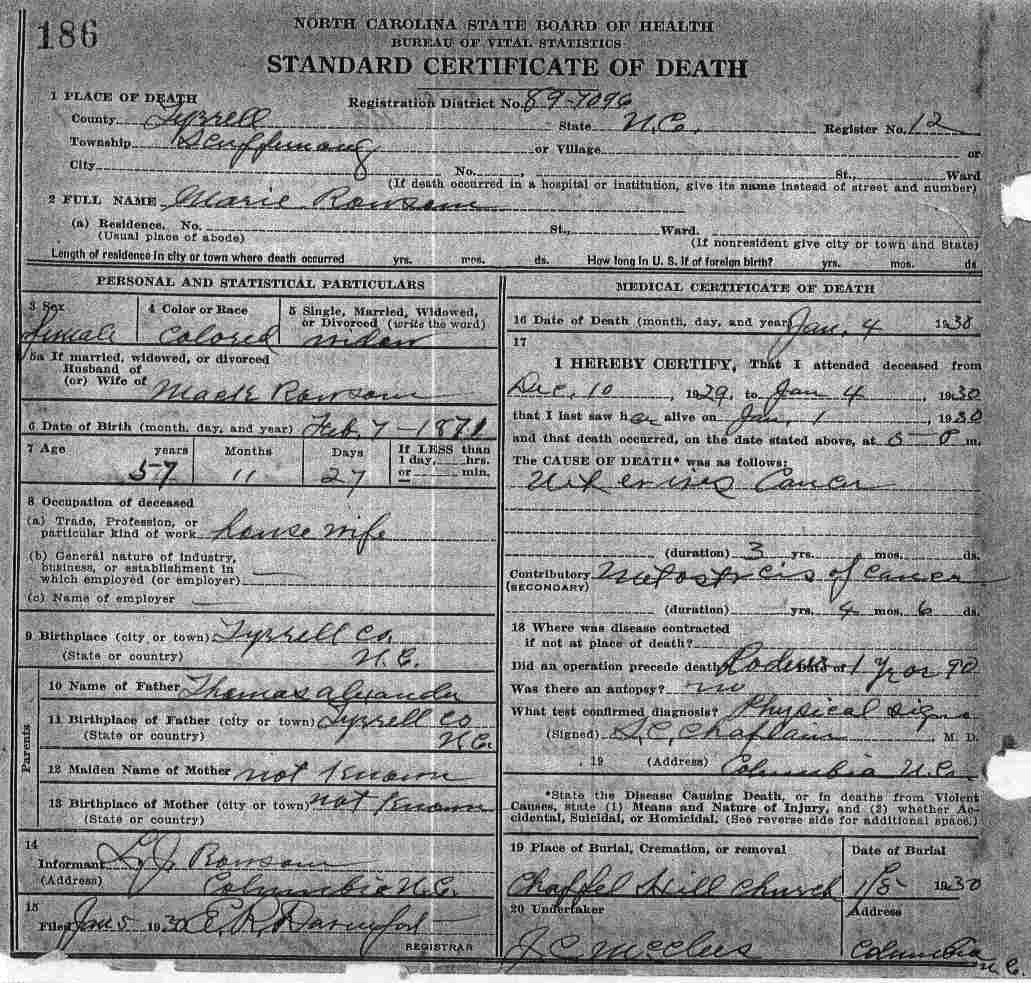 186
NORTH CAROLINA STATE BOARD OF HEALTH
BUREAU OF VITAL STATISTICS
STANDARD CERTIFICATE OF DEATH
1 PLACE OF DEATH Registration District No. 89-7096
County Tyrrell State N.C. Register No. 12
Township Scuppernong or Village or
City No. , St., Ward
(If death occurred in a hospital or institution, give its name instead of street and number)
2 FULL NAME Marie Rowsom
(a) Residence. No. St., Ward.
(Usual place of abode) (If nonresident give city or town and State)
Length of residence in city or town where death occurred yrs. mos. ds. How long in U. S. if of foreign birth? yrs. mos. ds.
PERSONAL AND STATISTICAL PARTICULARS
3 Sex 4 Color or Race 5 Single, Married, Widowed,
or Divorced (write the word)
female Colored widow
5a If married, widowed, or divorced
Husband of
(or) Wife of Mack Rowsom
6 Date of Birth (month, day, and year) Feb. 7 - 1871
7 Age years Months Days If LESS than
1 day, hrs.
or min.
57 11 27
8 Occupation of deceased
(a) Trade, Profession, or
particular kind of work house wife
(b) General nature of industry,
business, or establishment in
which employed (or employer)
(c) Name of employer
9 Birthplace (city or town) Tyrrell Co.
(State or country) N.C.
Parents
10 Name of Father Thomas Alexander
11 Birthplace of Father (city or town) Tyrrell Co
(State or country) N.C.
12 Maiden Name of Mother not known
13 Birthplace of Mother (city or town) not known
(State or country)
14
Informant L. J. Rowsom
(Address) Columbia N.C.
15
Filed Jan 5 1930 E. R.
REGISTRAR
MEDICAL CERTIFICATE OF DEATH
16 Date of Death (month, day, and year) Jan. 4 1930
17
I HEREBY CERTIFY, That I attended deceased from
Dec. 10, 1929, to Jan 4, 1930
that I last saw her alive on Jan. 1, 1930
and that death occurred, on the date stated above, at m.
The CAUSE OF DEATH* was as follows:
Cancer
(duration) 3 yrs. mos. ds.
Contributory of Cancer
(SECONDARY)
(duration) yrs. 4 mos. 6 ds.
18 Where was disease contracted
if not at place of death?
Did an operation precede death? Date of 1 yr
Was there an autopsy? no
What test confirmed diagnosis? Physical signs
(Signed) , M. D.
, 19 (Address) Columbia N.C.
*State the Disease Causing Death, or in deaths from Violent
Causes, state (1) Means and Nature of Injury, and (2) whether Ac-
cidental, Suicidal, or Homicidal. (See reverse side for additional space.)
19 Place of Burial, Cremation, or removal Date of Burial
Chappel Hill Church 1/5 1930
20 Undertaker Address
J. C. McClees Columbia
N.C.